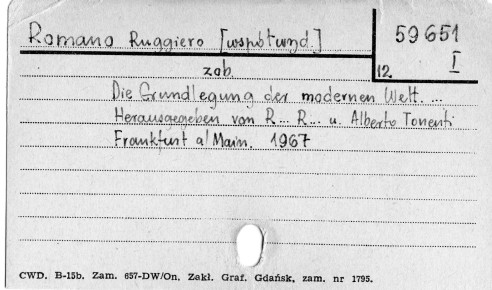 Romano Ruggiero [współwyd.]
59651
I
12.
zob.
Die Grundlegung der modernen Welt. ...
Herausgegeben von R... R... u. Alberto Tonenti
Frankfurt a/Main. 1967
CWD. B-15b. Zam. 657-DW/On. Zakł. Graf. Gdańsk, zam. nr 1795.